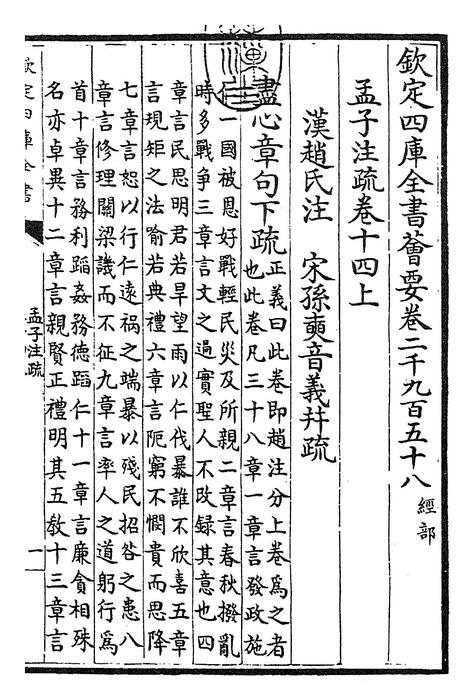 欽定四庫全書薈要卷二千九百五十八 經部
孟子注疏卷十四上
漢趙氏注 宋孫奭音義幷疏
盡心章句下疏 正義曰此卷即趙注分上卷爲之者
也此卷凡三十八章一章言發政施
仁一國被恩好戰輕民災及所親二章言春秋撥亂
時多戰爭三章言文之過實聖人不改録其意也四
章言民思明君若旱望雨以仁伐暴誰不欣喜五章
言規矩之法喻若典禮六章言阨窮不憫貴而思降
七章言恕以行仁遠禍之端暴以殘民招咎之患八
章言修理關梁譏而不征九章言率人之道躬行爲
首十章言務利蹈姦務德蹈仁十一章言廉貪相殊
名亦卓異十二章言親賢正禮明其五教十三章言
欽定四庫全書
孟子注疏
一